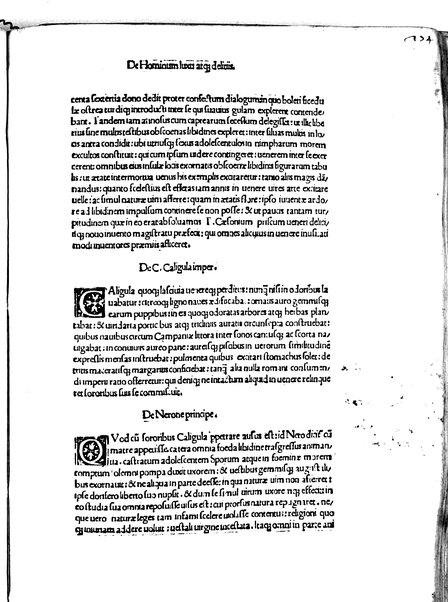 De Hominum luxu atq; deliciis.
centa sextertia dono dedit propter confectum dialogum in quo boleti ficedu
læ ostrea turdiq; introducti sunt inter se qui suauius gulam explerent contende
bant. Tandem iam animosus cum caprearum secessum delegisset: ut illic libe
rius sine multis testibus obscoenas libidines expleret: inter siluas multis in lo
cis antra condidit: ubi utriusq; sexus adolescentulos in nimpharum morem
excultos constituit: qui cum ipsum uidere contingeret: uenerem inter se exer
cerent: omnibus eius insulæ locis exornatis obscoenæ libidinis figuraram tabu
lis: ut ætate intermortua uenus his exemplis excitaretur: tanto aliis magis da
nandus: quanto scelestius est effetas iam annis in uenere uires arte excitare
uelle: ac simul naturæ uim afferre: quam in ætatis flore: ipso iuuentæ ardo
re ad libidinem impulsum continere se non posse: & ut paucis tantam tur
pitudinem quæ in eo erat absoluamus T. Cæsonium priscum ueneri delitu
tisq; nouo inuento magistratu præfecit: qui omnes aliquius in uenere inusitati
modi inuentores præmiis afficeret.
De C. Caligula imper.
CAligula quoq; lasciuia ueneriq; perditus: nunq; nisi in odoribus la
uabatur: cercoq; ligno naues ædificabat: ornatis auro gemmisq;
earum puppibus: in eis quoq; odoratas arbores atq; herbas plan
tabat: & uiridaria porticibus atq; tricliniis aurata circunsepta construebat:
quibus nauibus circum Campaniæ littora inter sonos cantusq; ac scorta na
uigabat: in conuiuiis aureo pane: aureisq; piscibus in uerorum similitudinem
expressis mensas instruebat: pulmenta quibus excitari stomachus solet: de
tritis margaritis conficiebat: tanq; alia nulla romani consumen
di imperii ratio offerretur: qui deniq; ne intactum aliquid in uenere relinque
ret sororibus suis se commiscuit.
De Nerone principe.
QVod cū sororibus Caligula ppetrare ausus est: id Nero dicit cū
matre appetiisse: cætera omnia foeda libidine trasgressus animan
tia. castratum adolescentem Sporum atque in foeminæ morem
comptum solemni pompa duxit uxorem: & uestibus gemmisq; augustalis
bus exornauit: & ne aliqua in parte deesset: in qua naturæ uim non afferret
ipse dorsero liberto suo nupsit. & dum se simul uirum uxorēq; effecit: in
eo studia sua omnia reposuisse uisus est: cui prorsus natura repugnaret. ne
que uero naturæ legem tam infami scelere uiolasse contentus: religioni quo
q; iniuriam addere uoluit: uestali uirgine incestata. Itaq; omni in parte ani